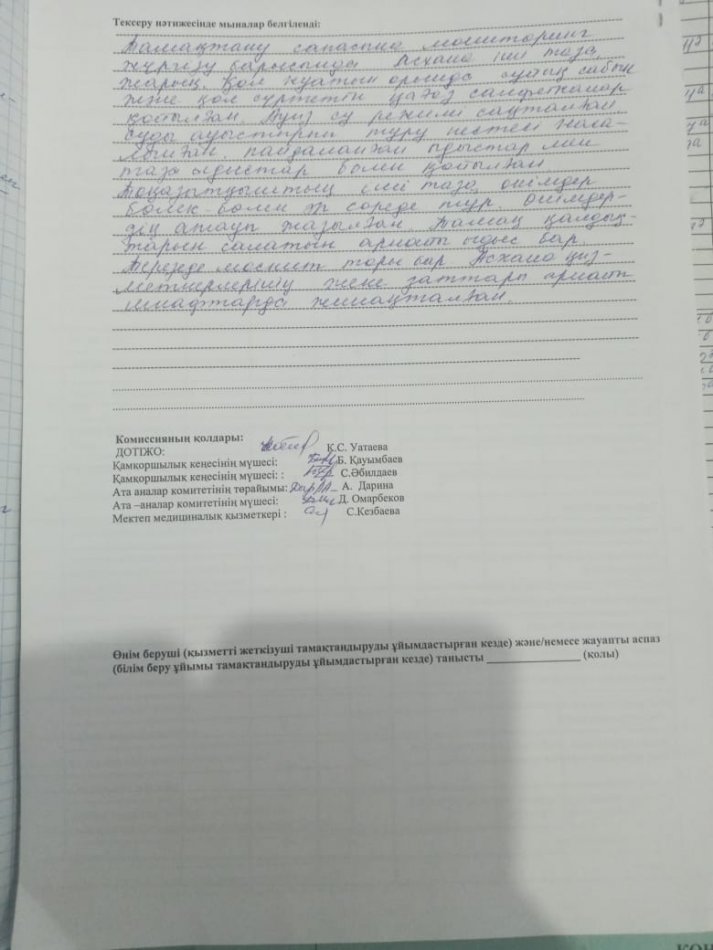 Тексеру нәтижесінде мыналар белгіленді:
Тамақтану сапасына мониторинг
жүргізу барысында Асхана іші таза,
жарық. Қол жуатын орында сұйық сабын
және қол сүртетін қағаз салфеткалар
қойылған. Ауыз су режимі сақталған
суды ауыстырып тұру кестесі
пайдаланған ыдыстар мен
таза ыдыстар бөлек қойылған
Тоңазытқыштың іші таза, өнімдер
бөлек бөлек сөреде тұр. Өнімдер-
дің атауы жазылған. Тамақ қалдық-
тарын салатын арнайы ыдыс бар
Терезеде москит торы бар Асхана қыз-
меткерлерінің жеке заттары арнайы
шкафтарда жинақталған.
Комиссияның қолдары:
ДОТІЖО: Қ.С. Уатаева
Қамқоршылық кеңесінің мүшесі: Б. Қауымбаев
Қамқоршылық кеңесінің мүшесі: : С.Әбилдаев
Ата аналар комитетінің төрайымы: А. Дарина
Ата –аналар комитетінің мүшесі: Д. Омарбеков
Мектеп медициналық қызметкері : С.Кезбаева
Өнім беруші (қызметті жеткізуші тамақтандыруды ұйымдастырған кезде) және/немесе жауапты аспаз
(білім беру ұйымы тамақтандыруды ұйымдастырған кезде) танысты ________________ (қолы)